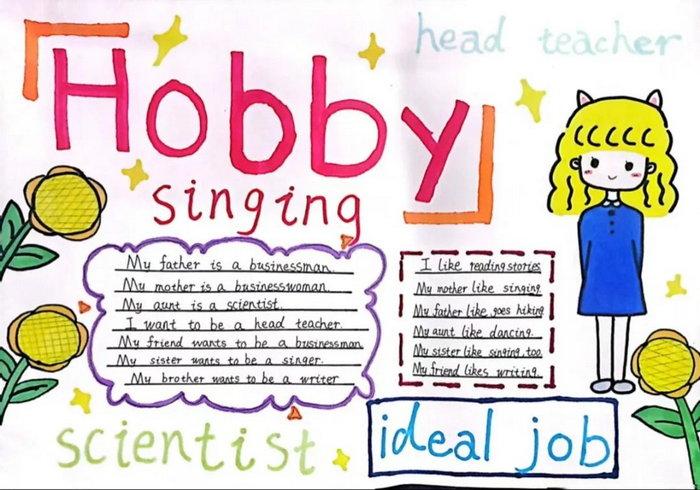 head teacher
Hobby
singing
My father is a businessman.
My mother is a businesswoman.
My aunt is a scientist.
I want to be a head teacher.
My friend wants to be a businessman.
My sister wants to be a singer.
My brother wants to be a writer
I like reading stories
My mother like singing.
My father like goes hiking
My aunt like dancing.
My sister like singing, too.
My friend likes writing.
scientist
ideal job